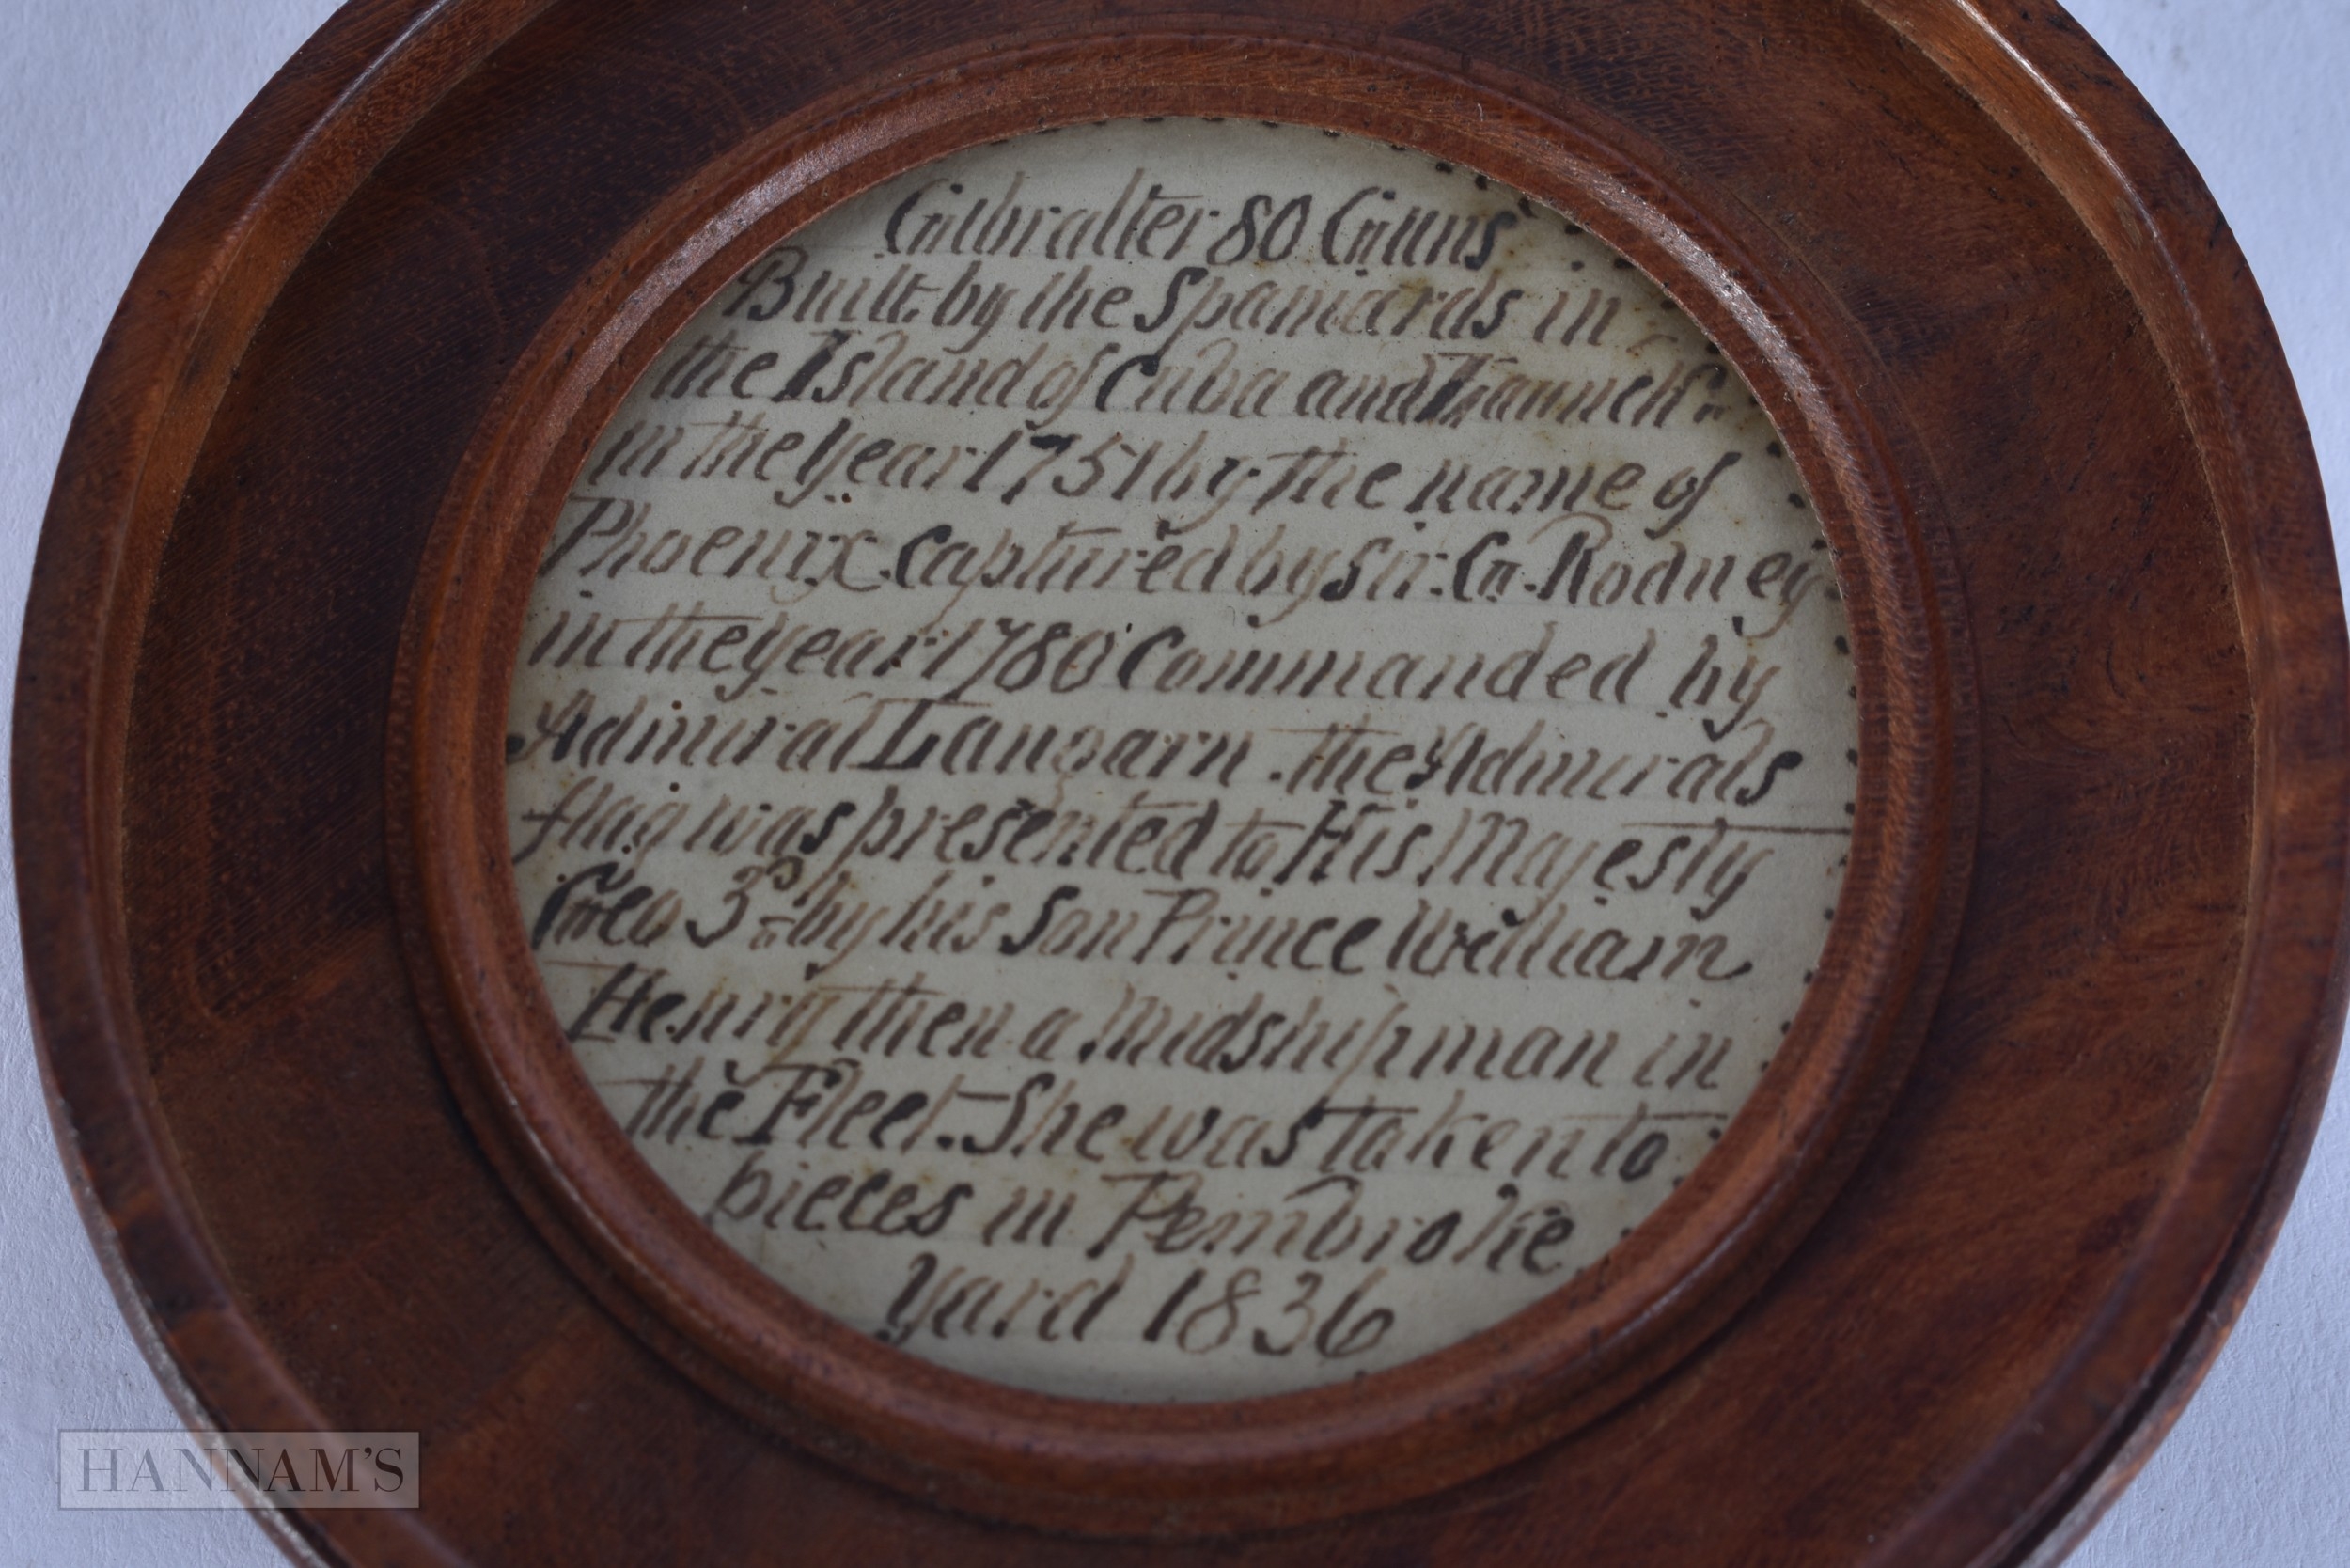 Gibralter 80 Guns
Built by the Spaniards in
the Island of Cuba and Launch.d
in the year 1751 by the name of
Phoenix captured by Sir. G. Rodney
in the year 1780 Commanded by
Admiral Langarn. the Admirals
flag was presented to His Majesty
Geo 3.d by his Son Prince William
Henry then a Midshipman in
the Fleet. She was taken to
pieces in Pembroke
Yard 1836
HANNAM'S